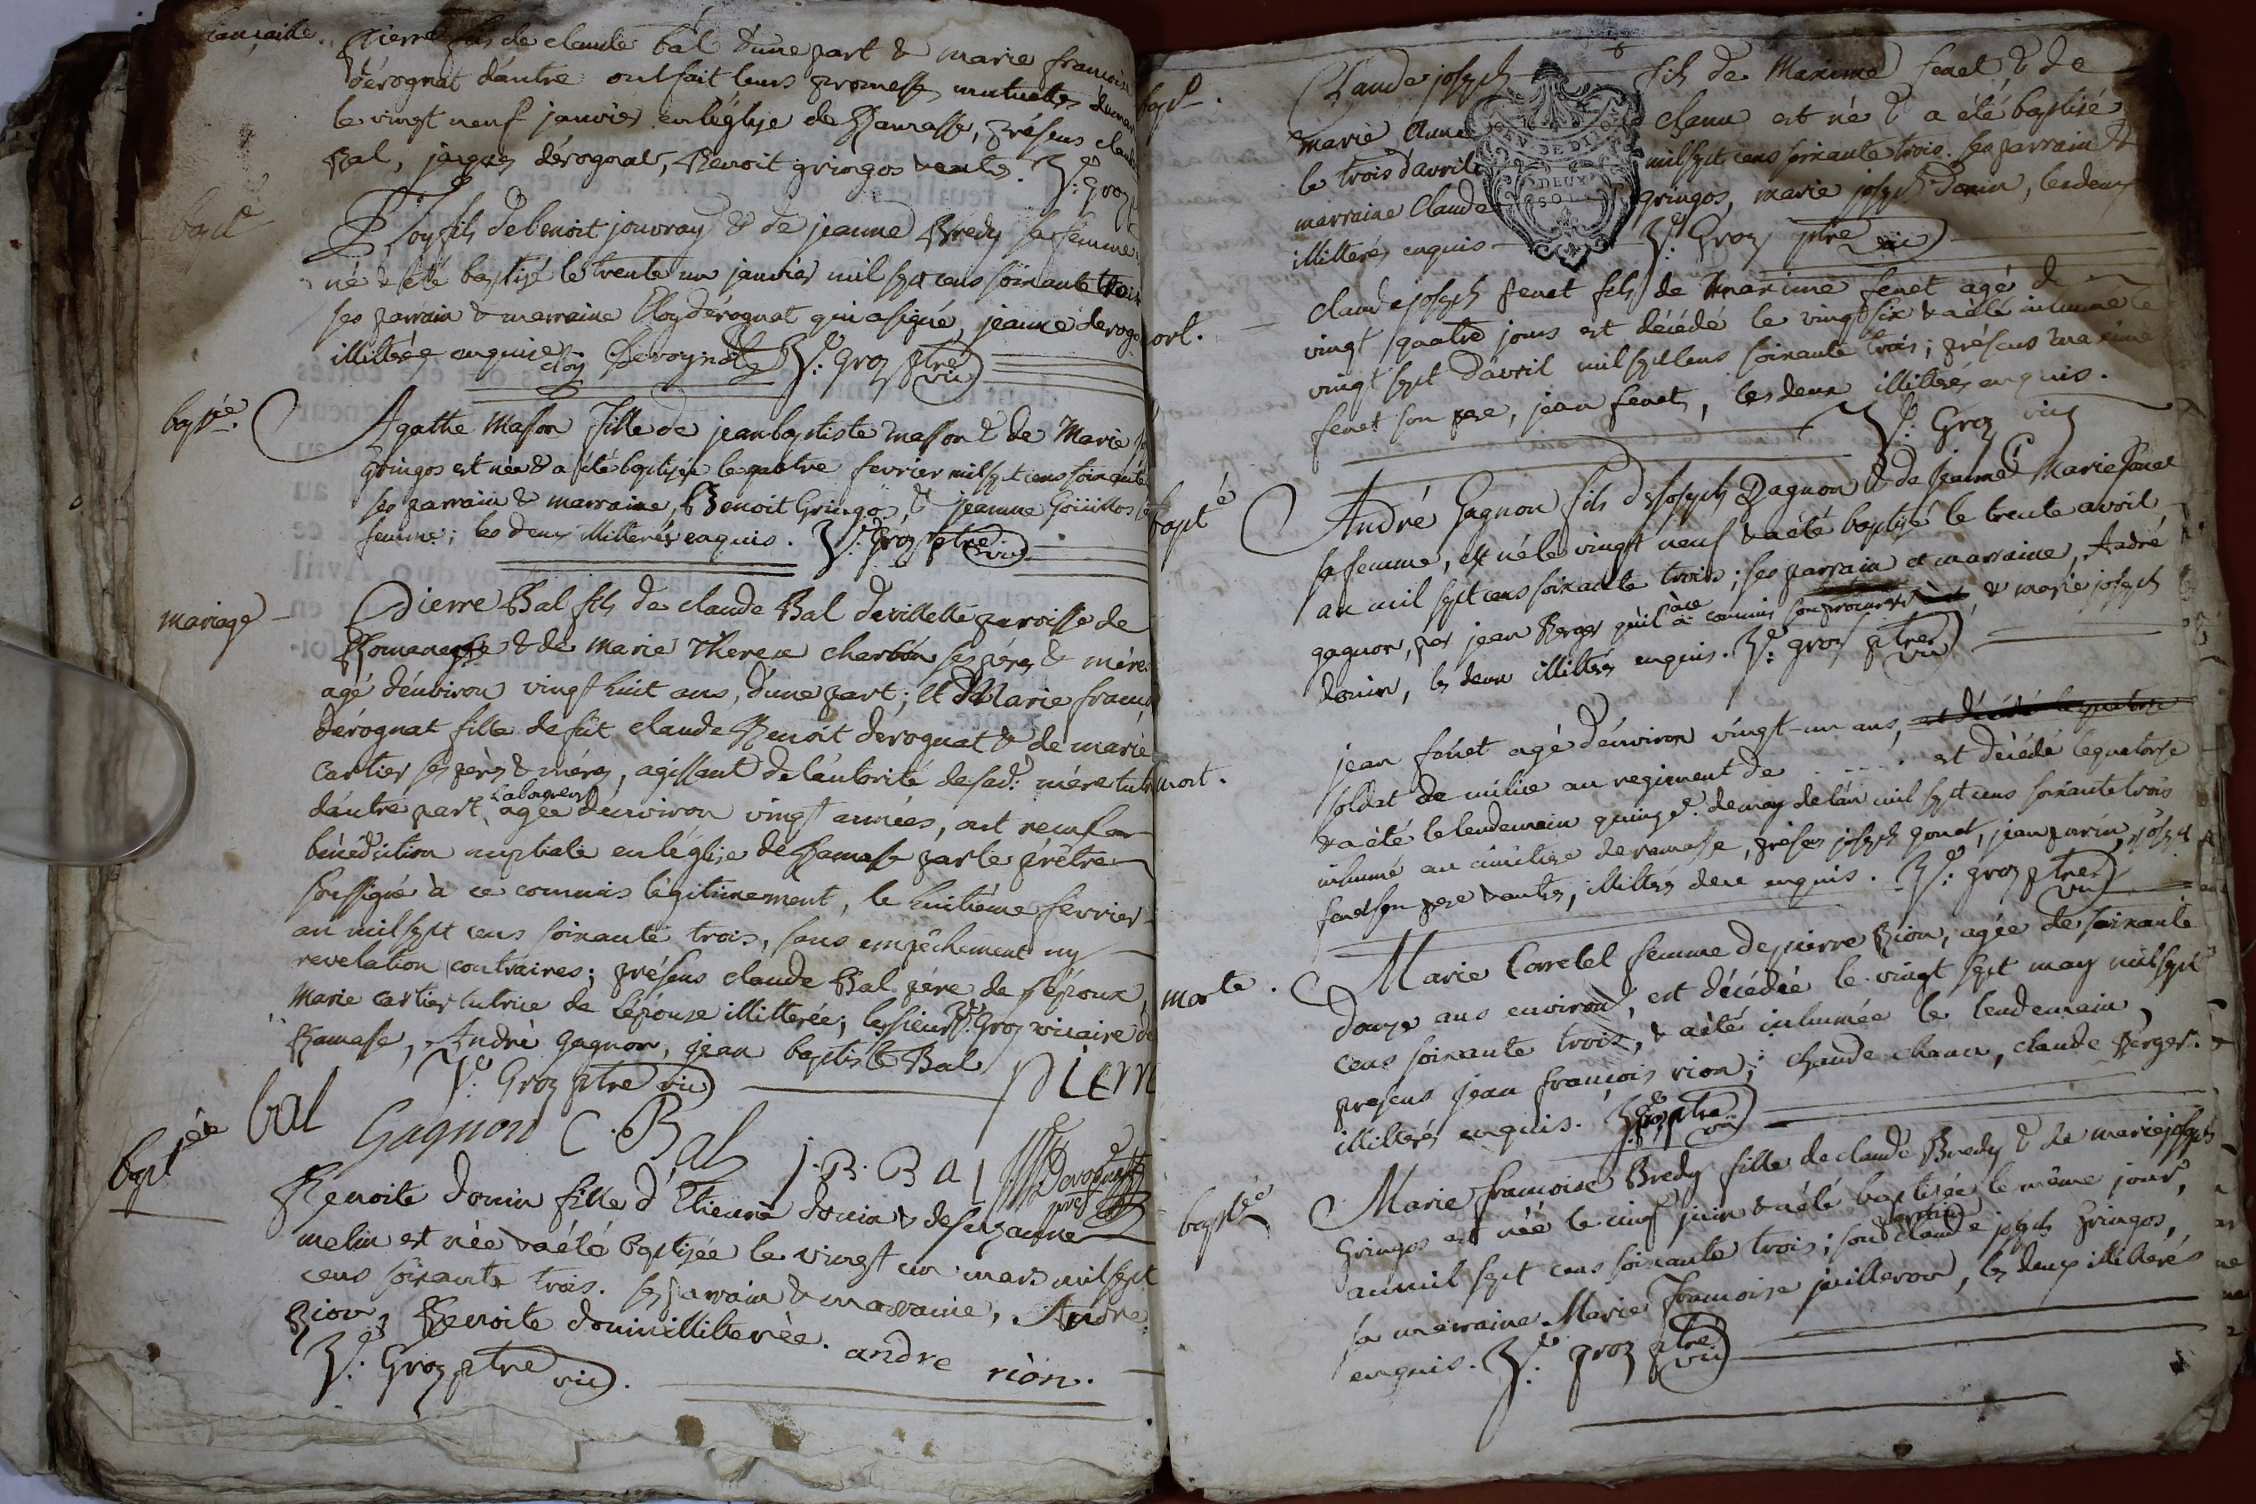 fiançaille. Pierre fils de claude bal d'une part & marie francoise
dérognat d'autre ont fait leurs promesses mutuelles
le vingt neuf janvier en l'église de Ramasse, présens claude
Bal, jaques dérognat, Benoit gringos & autres. J.ph Groz
bapt.
Eloy fils de benoit jouvray & de jeanne Bredy sa femme
né & été baptisé le trente un janvier mil sept cens soixante trois
ses parrain & marraine Eloy dérognat qui a signé, jeanne derog
illiterée enquise Eloy Derognat J.ph Groz ptre vic
baptée. Agathe Masson fille de jean baptiste masson & de Marie
Gringos est née & a été baptisée le quatre fevrier mil sept cens soixante
ses parrain & marraine, Benoit Gringos, & jeanne Goüillos sa
femme; les deux illiterés enquis. J.ph Groz ptre vic
mariage Pierre Bal fils de claude Bal de villette parroisse de
Romanesche & de marie Therese charbon ses péres & mére
agé d'énviron vingt huit ans, d'une part; et Marie franç
dérognat fille de fût claude Benoit dérognat & de marie
Cartier ses pérs & méres, agissant de l'autorité de sad: mére tut
d'autre part, Laboureurs agée d'énviron vingt années, ont reçu la
bénédiction nuptiale en l'église de Ramasse par le prêtre
soussigné à ce commis légitimement, le huitiéme fevrier
an mil sept cens soixante trois, sans empêchement ny
revelation contraires; présens claude Bal pére de l'époux,
Marie cartier tutrice de l'épouse illiterée; le sieur J.ph Groz vicaire de
Ramasse, André gagnon, jean baptiste Bal
J.ph Groz ptre vic pierr
bal Gagnon C. Bal J. B. Bal Derognat
baptée
Benoite donin fille d'Etienne donin & de suzanne
melin est née & a été baptisée le vingt un mars mil sept
cens soixante trois. ses parrain & marraine, André
Rion, Benoite donin illiterée. andre riòn.
J.ph Groz ptre vic.
bapt.
Claude joseph fils de Maxime fenet & de
marie Anne chanu est né & a été baptisé
le trois d'avril mil sept cens soixante trois. ses parrain &
marraine Claude gringos, marie joseph donin, les deux
illiterés enquis J.ph Groz ptre vic
GEN. DE DIJON
DEUX
SOLS
mort. claude joseph fenet fils de maxime fenet agé de
vingt quatre jours est décédé le vingt six & a été inhumé le
vingt sept d'avril mil sept cens soixante trois; présens maxime
fenet son pere, jean fenet, les deux illiterés enquis.
J.ph Groz vic
bapté André Gagnon fils de joseph Gagnon & de jeanne Marie fenet
sa femme, est né le vingt neuf & a été baptisé le trente avril
an mil sept cens soixante trois; ses parrain et marraine, André
gagnon, par jean Berger qu'il a à ce commis & marie joseph
donin, les deux illiterés enquis. J.ph groz ptre vic
jean fenet agé d'énviron vingt-un ans, est décédé le quatorse
mort. soldat de milice au regiment de ..... est décédé le quatorse
& a été le lendemain quinze de may de l'an mil sept cens soixante trois
inhumé au cimitiere de ramasse, présens joseph gonet, jean parin, joseph
fenet son pere & autres, illiterés de ce enquis. J.ph groz ptre vic
morte. Marie Corretel femme de pierre Rion, agée de soixante
douze ans environ, est décédée le vingt sept may mil sept
cens soixante trois, & a été inhumée le lendemain,
presens jean françois rion; claude chanu, claude Berger.
illiterés enquis. J.ph groz ptre vic
baptée Marie francoise Bredy fille de claude Bredy & de marie joseph
Gringos est née le cinq juin & a été baptisée le même jour,
an mil sept cens soixante trois; son parrain claude joseph gringos,
sa marraine Marie francoise juilleron, les deux illiterés
enquis. J.ph groz ptre vic